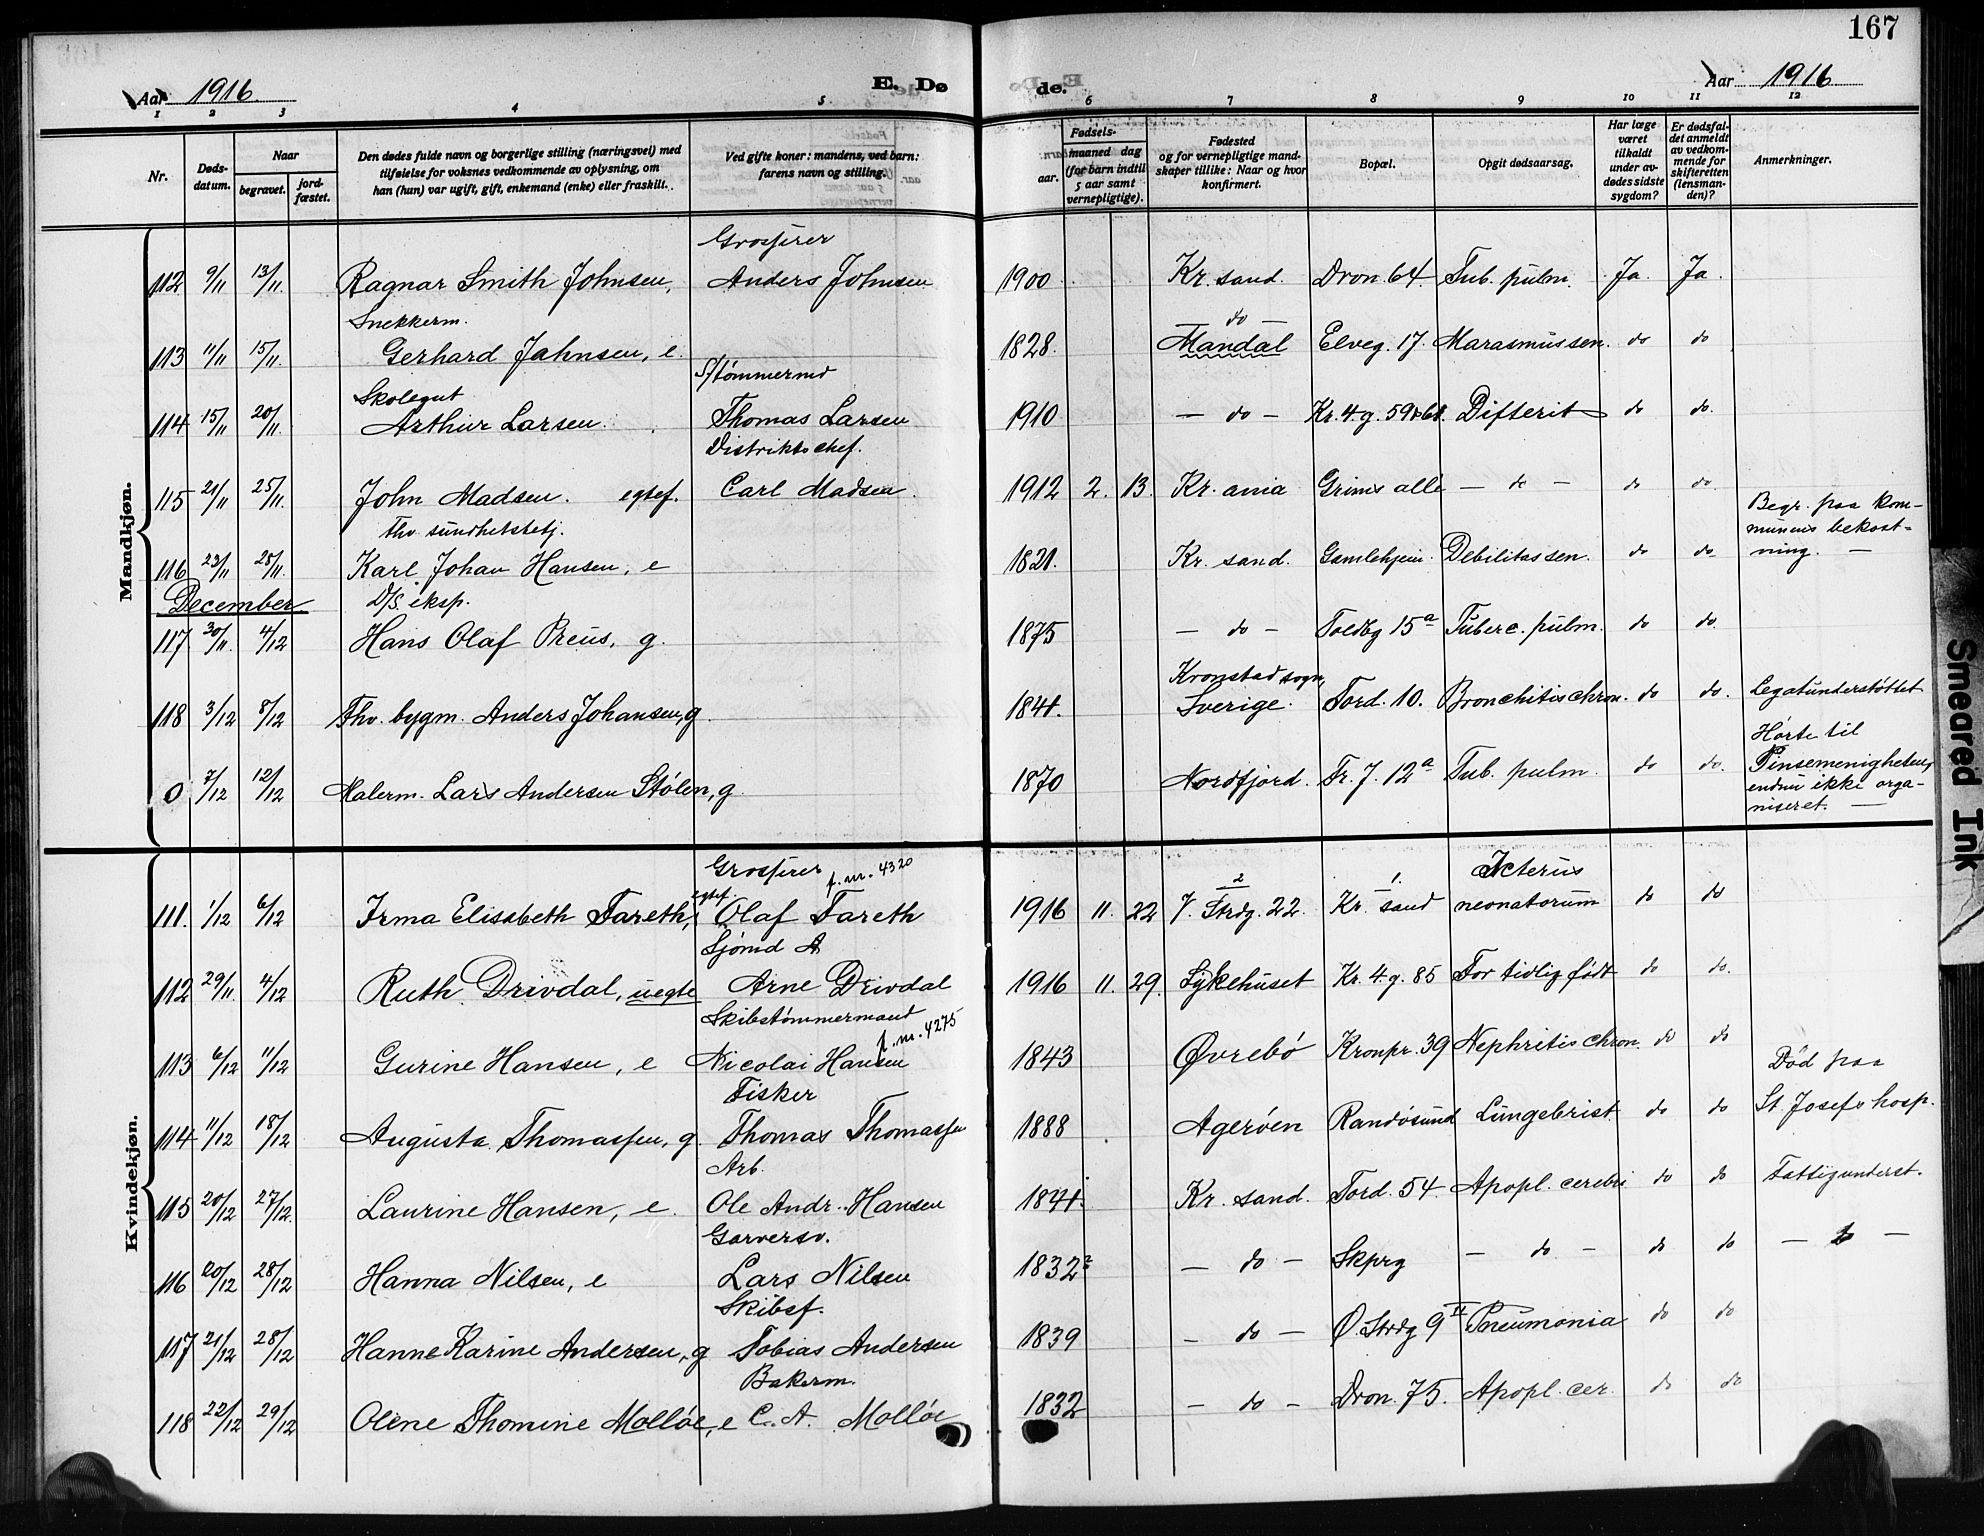 167
Aar 1916.
E. Dø
de.
Aar 1916
1 2 3 4 5 6 7 8 9 10 11 12
Nr.
Døds-
datum.
Naar
begravet.
jord-
fæstet.
Den dødes fulde navn og borgerlige stilling (næringsvei) med
tilføielse for voksnes vedkommende av oplysning, om
han (hun) var ugift, gift, enkemand (enke) eller fraskilt.
Ved gifte koner: mandens, ved barn:
farens navn og stilling.
Fødsels-
aar.
maaned dag
(for barn indtil
5 aar samt
vernepligtige).
Fødested
og for vernepligtige mand-
skaper tillike: Naar og hvor
konfirmert.
Bopæl.
Opgit dødsaarsag.
Har læge
været
tilkaldt
under av-
dødes sidste
sygdom?
Er dødsfal-
det anmeldt
av vedkom-
mende for
skifteretten
(lensman-
den)?
Anmerkninger.
Mandkjøn.
Grosserer
112 9/11 13/11. Ragnar Smith Johnsen, Anders Johnsen 1900 Kr. sand. Dron. 64. Tub. pulm. Ja. Ja.
Snekkerm. — do —
113 11/11 15/11. Gerhard Jahnsen, e. 1828. Mandal Elveg. 17. Marasmus sen. do do
Skolegut S/tømmermd
114 15/11 20/11. Arthur Larsen. Thomas Larsen 1910 — do — Kr. 4. g. 59 Difterit do do.
Distriktschef.
115 21/11 25/11. John Madsen. egtef. Carl Madsen. 1912 2. 13. Kr. ania Grims alle — do — do do.
Thv. sundhetsbetj. Begr. paa kom-
munens bekost-
116 23/11 28/11. Karl Johan Hansen, e 1821. Kr. sand. Gamlehjem. Debilitas sen. do do ning. —
December D/S. eksp.
117 30/11. 4/12 Hans Olaf Preus, g. 1875 — do — Toldbg 15a Tuberc. pulm. do do.
Kronstad sogn,
118 3/12 8/12 Thv. bygm. Anders Johansen, g. 1841. Sverige. Tord. 10. Bronchitis chron. do do. Legatunderstøttet
Hørte til
0 7/12 12/12 Malerm. Lars Andersen Stølen, g. 1870 Nordfjord. Fr. 7. 12a Tub. pulm. do do. Pinsemenigheten,
endnu ikke orga-
niseret. —
Kvindekjøn.
Grosserer f. nr. 4320 2 1. Icterus
111. 1/12 6/12 Irma Elisabeth Fareth, egtef. Olaf Fareth 1916 11. 22 V. Strdg. 22. Kr. sand neonatorum do do
Sjømd A
112 29/11 4/12 Ruth Drivdal, uegte Arne Drivdal 1916 11. 29. Sykehuset Kr. 4. g. 85 For tidlig født do do.
Skibstømmermand f. nr. 4275
113 6/12 11/12 Gurine Hansen, e Nicolai Hansen 1843 Øvrebø Kronpr. 39 Nephritis chron. do do
Fisker Død paa
114 11/12 18/12 Augusta Thomassen, g. Thomas Thomassen 1888 Agerøen Randøsund Lungebrist. do do St. Josefs hosp.
Arb.
115 20/12 27/12. Laurine Hansen, e. Ole Andr. Hansen 1841. Kr. sand. Tord. 54. Apopl. cerebri do do Fattigunderst.
Garversv.
116 20/12 28/12 Hanna Nilsen, e Lars Nilsen 1832 — do — Skprg — do — do do — —
Skibsf.
117 21/12 28/12 Hanne Karine Andersen, g Tobias Andersen 1839 — do — Ø. Strdg 9 II Pneumonia do do
Bakerm.
118 22/12 29/12 Olene Thomine Molløe, e C. A. Molløe 1832 — do — Dron. 75. Apopl. cer. do do
Smeared Ink